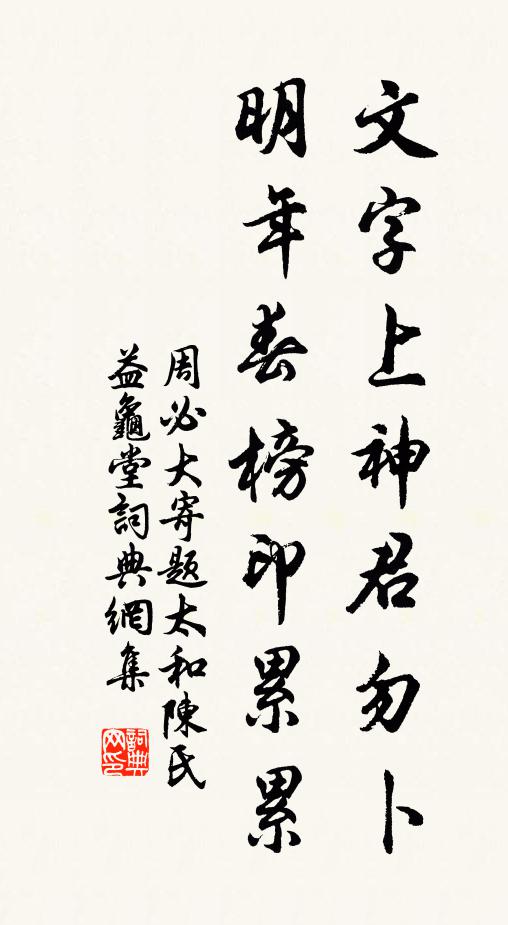 文字上神君勿卜
明年春榜印累累
周必大寄題太和陳氏
益龜堂詞典網集
詞典
网印